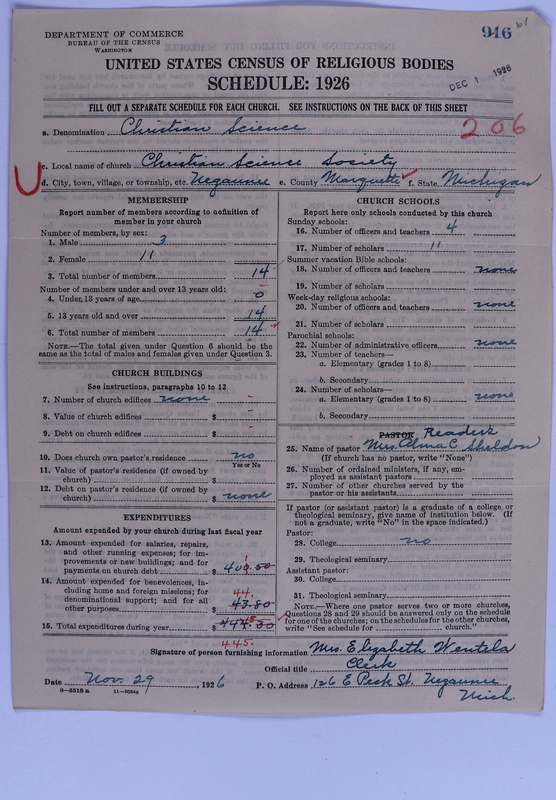 DEPARTMENT OF COMMERCE
BUREAU OF THE CENSUS
WASHINGTON
946 61
UNITED STATES CENSUS OF RELIGIOUS BODIES
SCHEDULE: 1926
DEC 1 1926
FILL OUT A SEPARATE SCHEDULE FOR EACH CHURCH. SEE INSTRUCTIONS ON THE BACK OF THIS SHEET
a. Denomination Christian Science
206
c. Local name of church Christian Science Society
d. City, town, village, or township, etc. Negaunee e. County Marquette f. State Michigan
MEMBERSHIP
Report number of members according to definition of member in your church
Number of members, by sex:
1. Male 3
2. Female 11
3. Total number of members 14
Number of members under and over 13 years old:
4. Under 13 years of age 0
5. 13 years old and over 14
6. Total number of members 14
NOTE.—The total given under Question 6 should be the
same as the total of males and females given under Question 3.
CHURCH BUILDINGS
See instructions, paragraphs 10 to 12
7. Number of church edifices none
8. Value of church edifices $ -
9. Debt on church edifices $ -
10. Does church own pastor's residence no
Yes or No
11. Value of pastor's residence (if owned by
church) $
12. Debt on pastor's residence (if owned by
church) $ none
EXPENDITURES
Amount expended by your church during last fiscal year
13. Amount expended for salaries, repairs,
and other running expenses; for im-
provements or new buildings; and for
payments on church debt $ 400.50
14. Amount expended for benevolences, in-
cluding home and foreign missions; for
denominational support; and for all
other purposes $ 43.80
44.
15. Total expenditures during year $ 444.30
445.
CHURCH SCHOOLS
Report here only schools conducted by this church
Sunday schools:
16. Number of officers and teachers 4
17. Number of scholars 11
Summer vacation Bible schools:
18. Number of officers and teachers none
19. Number of scholars
Week-day religious schools:
20. Number of officers and teachers none
21. Number of scholars
Parochial schools:
22. Number of administrative officers none
23. Number of teachers—
a. Elementary (grades 1 to 8)
b. Secondary
24. Number of scholars—
a. Elementary (grades 1 to 8) none
b. Secondary
PASTOR Readers
25. Name of pastor Mrs. Alma C Sheldon
(If church has no pastor, write "None")
26. Number of ordained ministers, if any, em-
ployed as assistant pastors
27. Number of other churches served by the
pastor or his assistants
If pastor (or assistant pastor) is a graduate of a college or
theological seminary, give name of institution below. (If
not a graduate, write "No" in the space indicated.)
Pastor:
28. College no
29. Theological seminary
Assistant pastor:
30. College
31. Theological seminary
NOTE.—Where one pastor serves two or more churches,
Questions 28 and 29 should be answered only on the schedule
for one of the churches; on the schedules for the other churches,
write "See schedule for church."
Signature of person furnishing information Mrs. Elizabeth Wentela
Official title Clerk
Date Nov. 29, 1926 P. O. Address 126 E Peck St. Negaunee
Mich.
8-5518a 11-9034a